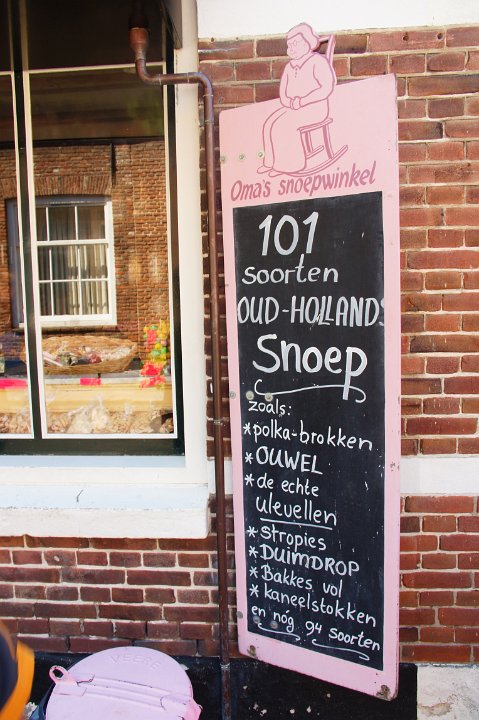 Oma's snoepwinkel
101
soorten
OUD-HOLLANDS
Snoep
zoals:
*polka-brokken
*OUWEL
*de echte
ulevellen
*Stropies
*DUIMDROP
*Bakkes vol
*kaneelstokken
en nóg 94 soorten
VEERE